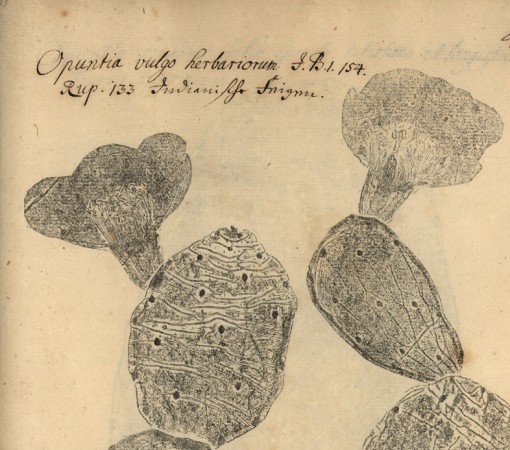 Opuntia vulgo herbariorum J.B.1.154.
Rup. 133 Indianische Feigen.